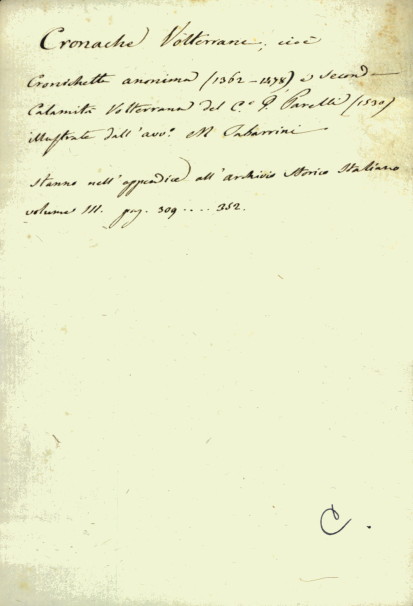 Cronache Volterrane, cioè
Cronichetta anonima (1362-1478) e seconda
Calamità Volterrana del C.e P. Parelli (1530)
illustrate dall'avv.o M. Tabarrini
stanno nell'appendice all'archivio Storico Italiano
volume III. pag. 309 .... 352.
C.